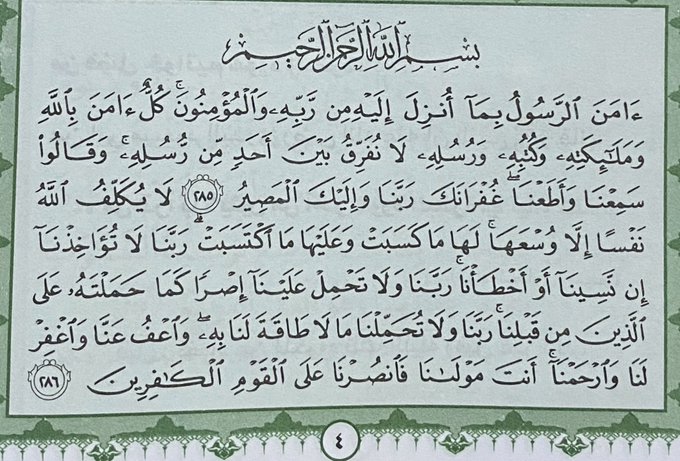 بِسْمِ ٱللَّهِ ٱلرَّحْمَٰنِ ٱلرَّحِيمِ
ءَامَنَ ٱلرَّسُولُ بِمَآ أُنزِلَ إِلَيْهِ مِن رَّبِّهِۦ وَٱلْمُؤْمِنُونَۚ كُلٌّ ءَامَنَ بِٱللَّهِ
وَمَلَٰٓئِكَتِهِۦ وَكُتُبِهِۦ وَرُسُلِهِۦ لَا نُفَرِّقُ بَيْنَ أَحَدٍ مِّن رُّسُلِهِۦۚ وَقَالُوا۟
سَمِعْنَا وَأَطَعْنَاۖ غُفْرَانَكَ رَبَّنَا وَإِلَيْكَ ٱلْمَصِيرُ ٢٨٥ لَا يُكَلِّفُ ٱللَّهُ
نَفْسًا إِلَّا وُسْعَهَاۚ لَهَا مَا كَسَبَتْ وَعَلَيْهَا مَا ٱكْتَسَبَتْۗ رَبَّنَا لَا تُؤَاخِذْنَآ
إِن نَّسِينَآ أَوْ أَخْطَأْنَاۚ رَبَّنَا وَلَا تَحْمِلْ عَلَيْنَآ إِصْرًا كَمَا حَمَلْتَهُۥ عَلَى
ٱلَّذِينَ مِن قَبْلِنَاۚ رَبَّنَا وَلَا تُحَمِّلْنَا مَا لَا طَاقَةَ لَنَا بِهِۦۖ وَٱعْفُ عَنَّا وَٱغْفِرْ
لَنَا وَٱرْحَمْنَآۚ أَنتَ مَوْلَىٰنَا فَٱنصُرْنَا عَلَى ٱلْقَوْمِ ٱلْكَٰفِرِينَ ٢٨٦
٤